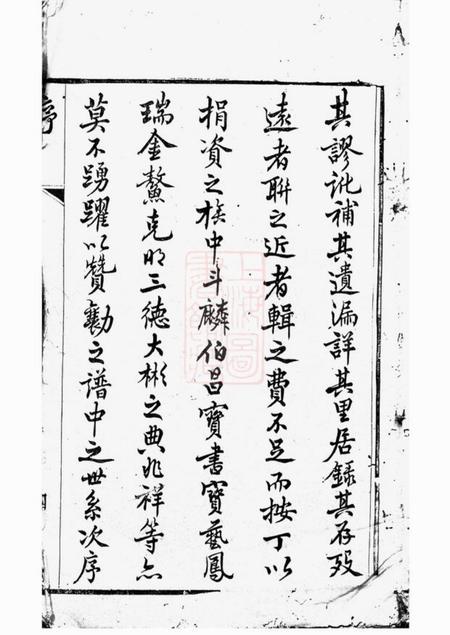 其謬訛補其遺漏詳其里居錄其存歿
遠者聯之近者輯之費不足而按丁以
捐資之族中斗麟伯昌寶書寶藝鳳
瑞金鰲克明三德大彬之典兆祥等亦
莫不踴躍以贊勷之譜中之世系次序
序